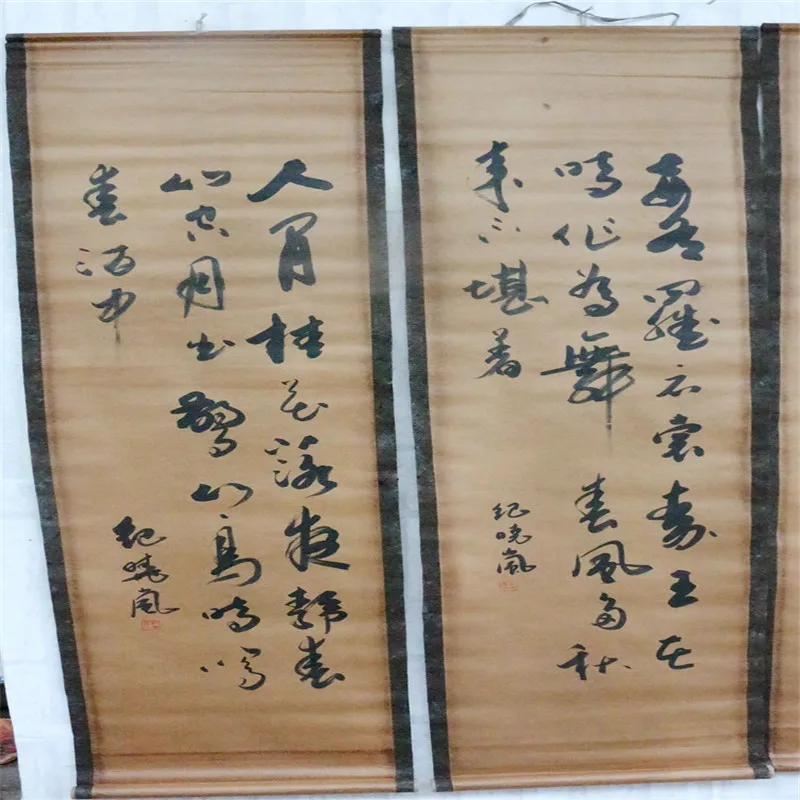 妾有羅衣裳秦王在
時作為舞春風多秋
來不堪著
紀曉嵐
人閒桂花落夜靜春
山空月出驚山鳥時鳴
春澗中
紀曉嵐